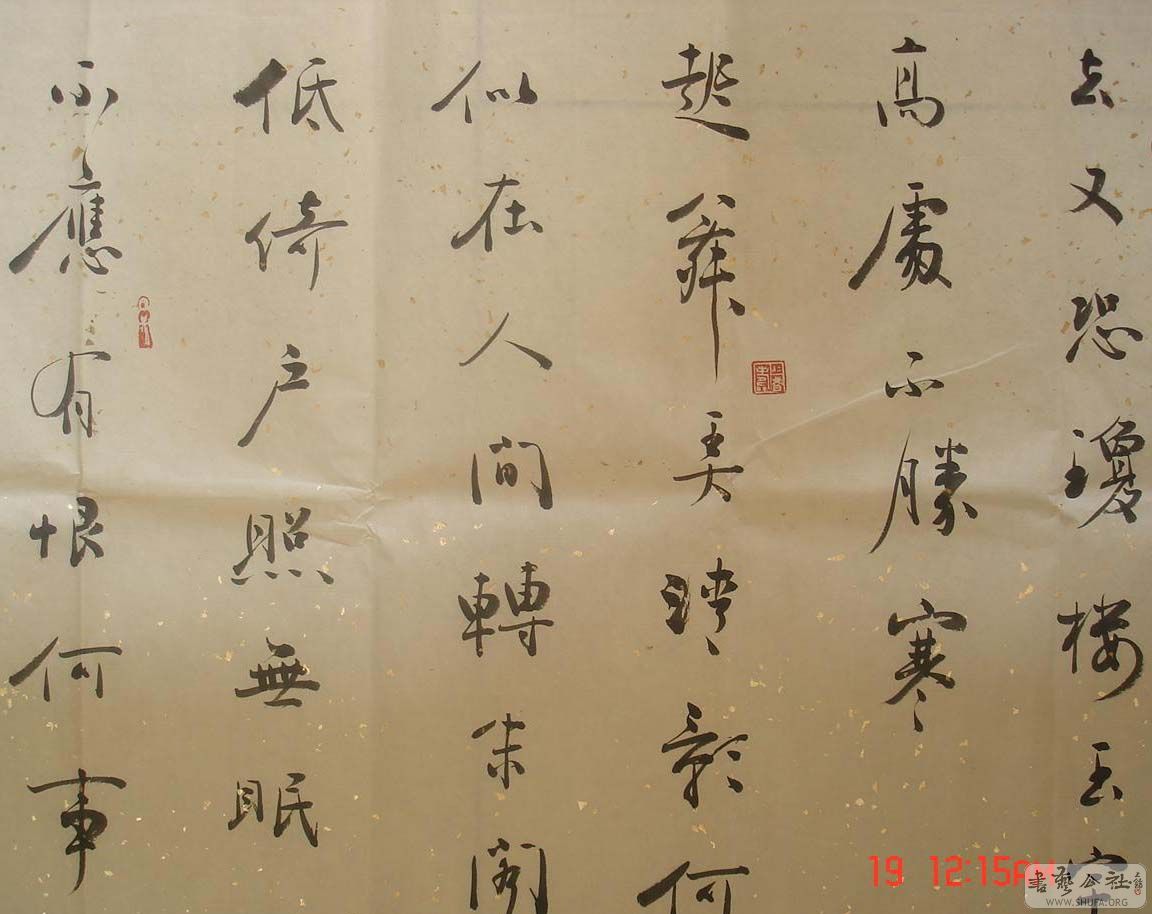 去又恐瓊楼玉宇
高處不勝寒
起舞弄清影何
似在人間轉朱閣
低倚户照無眠
不應有恨何事
19 12:15AM
書藝公社
WWW.SHUFA.ORG